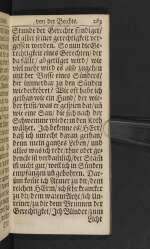 von der Beichte. 283
Stunde der Gerechte sündiget/
sol aller seiner gerechtigkeit ver-
gessen werden. So nun die Ge-
rechtigkeit eines Gerechten/ der
da fällt/ abgetilget wird/ wie
viel mehr wird es also zugehen
mit der Busse eines Sünders/
der immerdar zu den Sünden
wiederkehret? Wie oft habe ich
gethan wie ein Hund/ der wie-
der frist/ was er gespeiet hat/ un
wie eine Sau/ die sich nach der
Schwemme wieder in den Koth
wältzet. Ich bekenne es/ HErr/
daß ich unrecht daran gethan/
denn mein gantzes Leben/ und
alles was ich rede/ thue oder ge-
dencke ist verdamlich/ der Saam
ist nicht gut/ weil ich in Sünden
empfangen uñ gebohren. Dar-
um fliehe ich Armer zu dir/ dem
reichen HErrn/ ich sehr krancker
zu dir dem waren Artzt/ ich Un-
reiner/ zu dir dem Brunnen der
Gerechtigkeit/ Ich Blinder/ zum
Licht